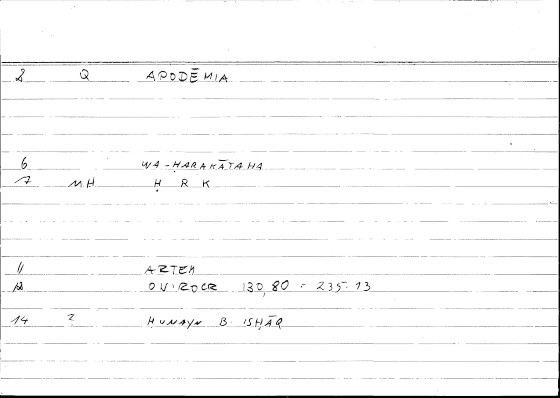 2 Q APODĒMIA
6 WA-ḤARAKĀTAHA
7 MH Ḥ R K
11 ARTEM
12 OVIROCR 130,80 = 235.13
14 ? ḤUNAYN B. ISḤĀQ